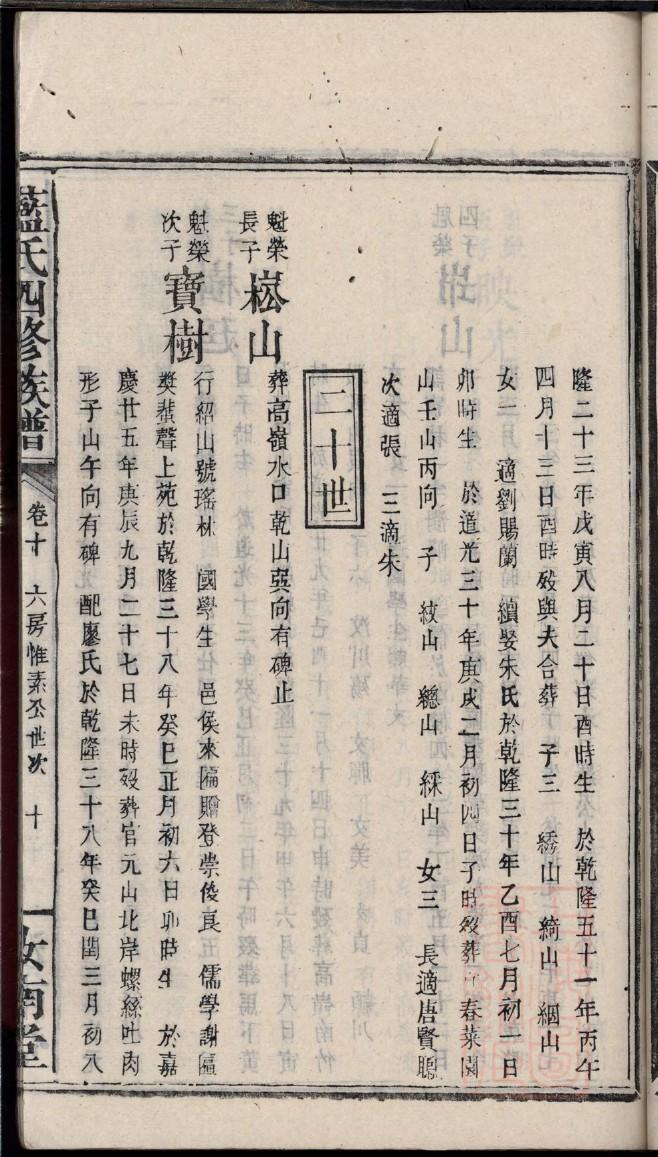 隆二十三年戊寅八月二十日酉時生 於乾隆五十一年丙午
四月十三日酉時歿與夫合葬 子三 綉山 綺山 絪山
女一 適劉賜蘭 續娶朱氏於乾隆三十年乙酉七月初一日
卯時生 於道光三十年庚戌二月初四日子時歿葬 春菜園
山壬山丙向 子 紋山 總山 綵山 女三 長適唐賢鵬
次適張 三適朱
二十世
魁榮長子 崧山 葬高嶺水口乾山巽向有碑止
魁榮次子 寶樹 行紹山號瑤林 國學生 邑侯來匾贈登崇俊良 儒學謝匾
奬蜚聲上苑於乾隆三十八年癸巳正月初六日卯時生 於嘉
慶廿五年庚辰九月二十七日未時歿葬官元山北岸螺絲吐肉
形子山午向有碑 配廖氏於乾隆三十八年癸巳閏三月初八
藍氏四修族譜 卷十 六房惟素公世次 十 汝南堂